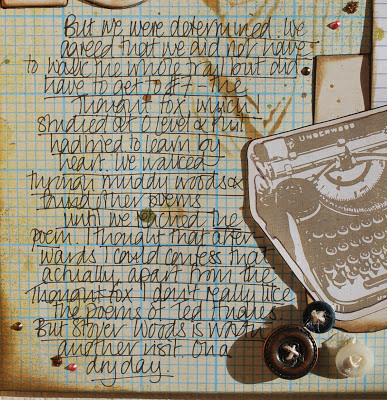 But we were determined. We
agreed that we did not have
to walk the whole trail but did
have to get to #7 - The
Thought Fox, which I
studied at O level & Phil
had tried to learn by
heart. We walked
through muddy woods &
found other poems
until we reached the
poem. I thought that after
wards I could confess that
actually, apart from the
Thought Fox I don't really like
the poems of Ted Hughes.
But Stover Woods is worth
another visit. On a
dry day.
UNDERWOOD